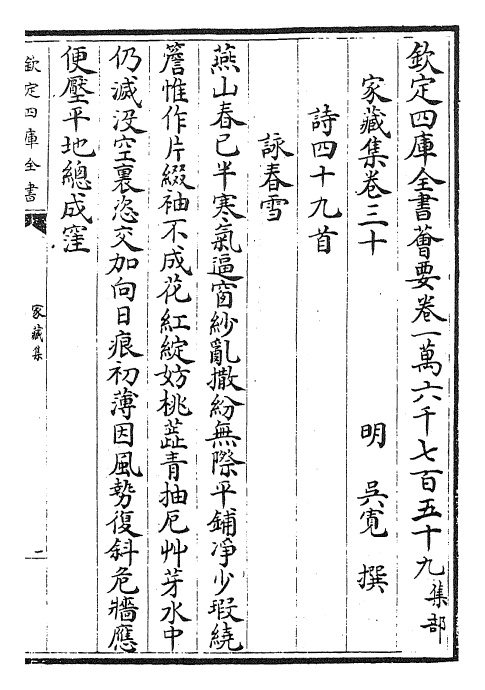 欽定四庫全書薈要卷一萬六千七百五十九集部
家藏集卷三十 明 吳寛 撰
詩四十九首
詠春雪
燕山春已半寒氣逼窗紗亂撒紛無際平鋪淨少瑕繞
簷惟作片綴袖不成花紅綻妨桃蘂青抽厄艸芽水中
仍滅没空裏恣交加向日痕初薄因風勢復斜危牆應
便壓平地總成窪
欽定四庫全書
家藏集
二